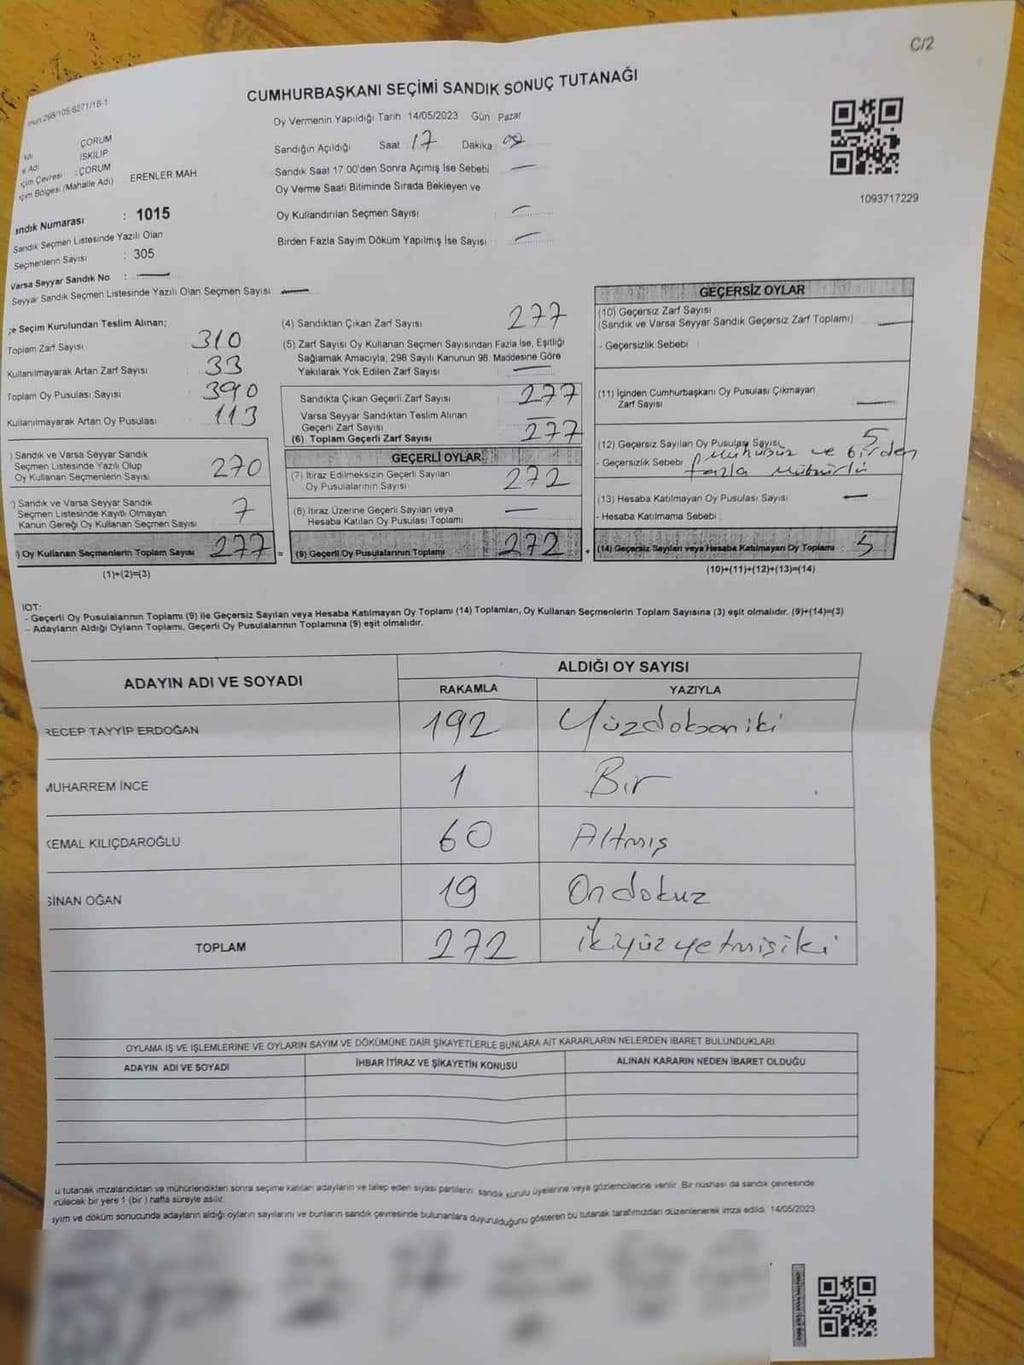 C/2
CUMHURBAŞKANI SEÇİMİ SANDIK SONUÇ TUTANAĞI
Oy Vermenin Yapıldığı Tarih 14/05/2023 Gün Pazar
Sandığın Açıldığı Saat 17 Dakika 00
Sandık Saat 17:00'den Sonra Açımış İse Sebebi —
Oy Verme Saati Bitiminde Sırada Bekleyen ve
Oy Kullandırılan Seçmen Sayısı —
Birden Fazla Sayım Döküm Yapılmış İse Sayısı —
1093717229
ÇORUM
İSKİLİP
çim Çevresi : ÇORUM
çim Bölgesi (Mahalle Adı) ERENLER MAH
ındık Numarası : 1015
Sandık Seçmen Listesinde Yazılı Olan
Seçmenlerin Sayısı : 305
Varsa Seyyar Sandık No : —
Seyyar Sandık Seçmen Listesinde Yazılı Olan Seçmen Sayısı —
;e Seçim Kurulundan Teslim Alınan;
Toplam Zarf Sayısı : 310
Kullanılmayarak Artan Zarf Sayısı : 33
Toplam Oy Pusulası Sayısı : 390
Kullanılmayarak Artan Oy Pusulası : 113
) Sandık ve Varsa Seyyar Sandık
Seçmen Listesinde Yazılı Olup
Oy Kullanan Seçmenlerin Sayısı 270
) Sandık ve Varsa Seyyar Sandık
Seçmen Listesinde Kayıtlı Olmayan
Kanun Gereği Oy Kullanan Seçmen Sayısı 7
) Oy Kullanan Seçmenlerin Toplam Sayısı 277 =
(1)+(2)=(3)
(4) Sandıktan Çıkan Zarf Sayısı 277
(5) Zarf Sayısı Oy Kullanan Seçmen Sayısından Fazla İse, Eşitliği
Sağlamak Amacıyla; 298 Sayılı Kanunun 98. Maddesine Göre
Yakılarak Yok Edilen Zarf Sayısı —
Sandıkta Çıkan Geçerli Zarf Sayısı 277
Varsa Seyyar Sandıktan Teslim Alınan
Geçerli Zarf Sayısı —
(6) Toplam Geçerli Zarf Sayısı 277
GEÇERLİ OYLAR
(7) İtiraz Edilmeksizin Geçerli Sayılan
Oy Pusulalarının Sayısı 272
(8) İtiraz Üzerine Geçerli Sayılan veya
Hesaba Katılan Oy Pusulası Toplamı —
(9) Geçerli Oy Pusulalarının Toplamı 272 +
GEÇERSİZ OYLAR
(10) Geçersiz Zarf Sayısı
(Sandık ve Varsa Seyyar Sandık Geçersiz Zarf Toplamı) —
- Geçersizlik Sebebi :
(11) İçinden Cumhurbaşkanı Oy Pusulası Çıkmayan
Zarf Sayısı —
(12) Geçersiz Sayılan Oy Pusulası Sayısı 5
- Geçersizlik Sebebi : Mühürsüz ve birden
fazla mühürlü
(13) Hesaba Katılmayan Oy Pusulası Sayısı —
- Hesaba Katılmama Sebebi :
(14) Geçersiz Sayılan veya Hesaba Katılmayan Oy Toplamı 5
(10)+(11)+(12)+(13)=(14)
IOT:
- Geçerli Oy Pusulalarının Toplamı (9) ile Geçersiz Sayılan veya Hesaba Katılmayan Oy Toplamı (14) Toplamları, Oy Kullanan Seçmenlerin Toplam Sayısına (3) eşit olmalıdır. (9)+(14)=(3)
- Adayların Aldığı Oyların Toplamı, Geçerli Oy Pusulalarının Toplamına (9) eşit olmalıdır.
ADAYIN ADI VE SOYADI ALDIĞI OY SAYISI
RAKAMLA YAZIYLA
RECEP TAYYİP ERDOĞAN 192 Yüzdoksaniki
MUHARREM İNCE 1 Bir
KEMAL KILIÇDAROĞLU 60 Altmış
SİNAN OĞAN 19 Ondokuz
TOPLAM 272 ikiyüzyetmişiki
OYLAMA İŞ VE İŞLEMLERİNE VE OYLARIN SAYIM VE DÖKÜMÜNE DAİR ŞİKAYETLERLE BUNLARA AİT KARARLARIN NELERDEN İBARET BULUNDUKLARI
ADAYIN ADI VE SOYADI İHBAR İTİRAZ VE ŞİKAYETİN KONUSU ALINAN KARARIN NEDEN İBARET OLDUĞU
u tutanak imzalandıktan ve mühürlendikten sonra seçime katılan adayların ve talep eden siyasi partilerin sandık kurulu üyelerine veya gözlemcilerine verilir. Bir nüshası da sandık çevresinde
rülecek bir yere 1 (bir) hafta süreyle asılır.
ayım ve döküm sonucunda adayların aldığı oyların sayılarını ve bunların sandık çevresinde bulunanlara duyurulduğunu gösteren bu tutanak tarafımızdan düzenlenerek imza edildi. 14/05/2023